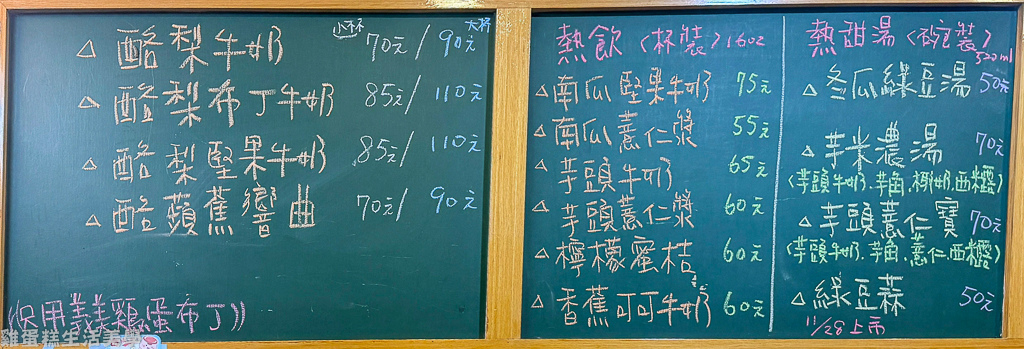 小杯 大杯
△ 酪梨牛奶 70元/90元
△ 酪梨布丁牛奶 85元/110元
△ 酪梨堅果牛奶 85元/110元
△ 酪蘋蕉響曲 70元/90元
((只用義美雞蛋布丁))
熱飲〈杯裝〉16oz
△ 南瓜堅果牛奶 75元
△ 南瓜薏仁漿 55元
△ 芋頭牛奶 65元
△ 芋頭薏仁漿 60元
△ 檸檬蜜桔 60元
△ 香蕉可可牛奶 60元
熱甜湯〈碗裝〉520ml
△ 冬瓜綠豆湯 50元
△ 芋米濃湯 70元
(芋頭牛奶.芋角.椰奶.西米露)
△ 芋頭薏仁寶 70元
(芋頭牛奶.芋角.薏仁.西米露)
△ 綠豆蒜 50元
11/28上市
雞蛋糕生活美學